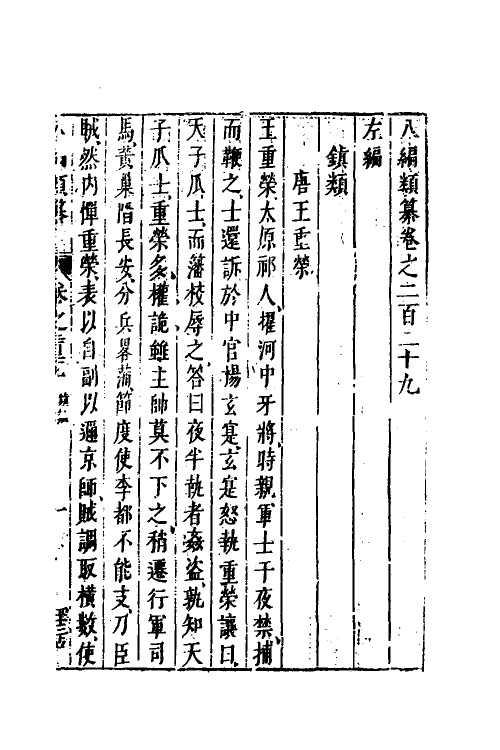 八編類纂卷之二百二十九
左編
鎮類
唐王重榮
王重榮太原祁人擢河中牙將時親軍士干夜禁捕
而鞭之士還訴於中官楊玄寔玄寔怒執重榮讓曰
天子爪士而藩校辱之答曰夜半執者姦盜孰知天
子爪士重榮多權詭雖主帥莫不下之稍遷行軍司
馬黃巢陷長安分兵畧蒲節度使李都不能支乃臣
賊然內憚重榮表以自副以逼京師賊調取橫數使
類纂 卷之 鎮類 一